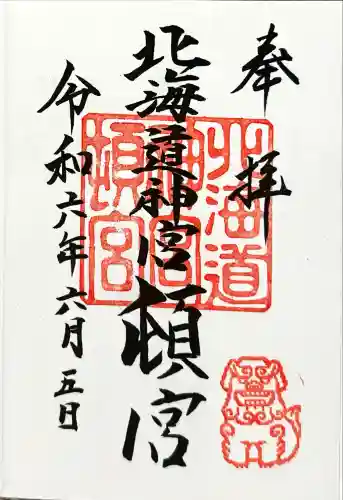 奉拝
北海道神宮頓宮
令和六年六月五日
北海道
神宮
頓宮